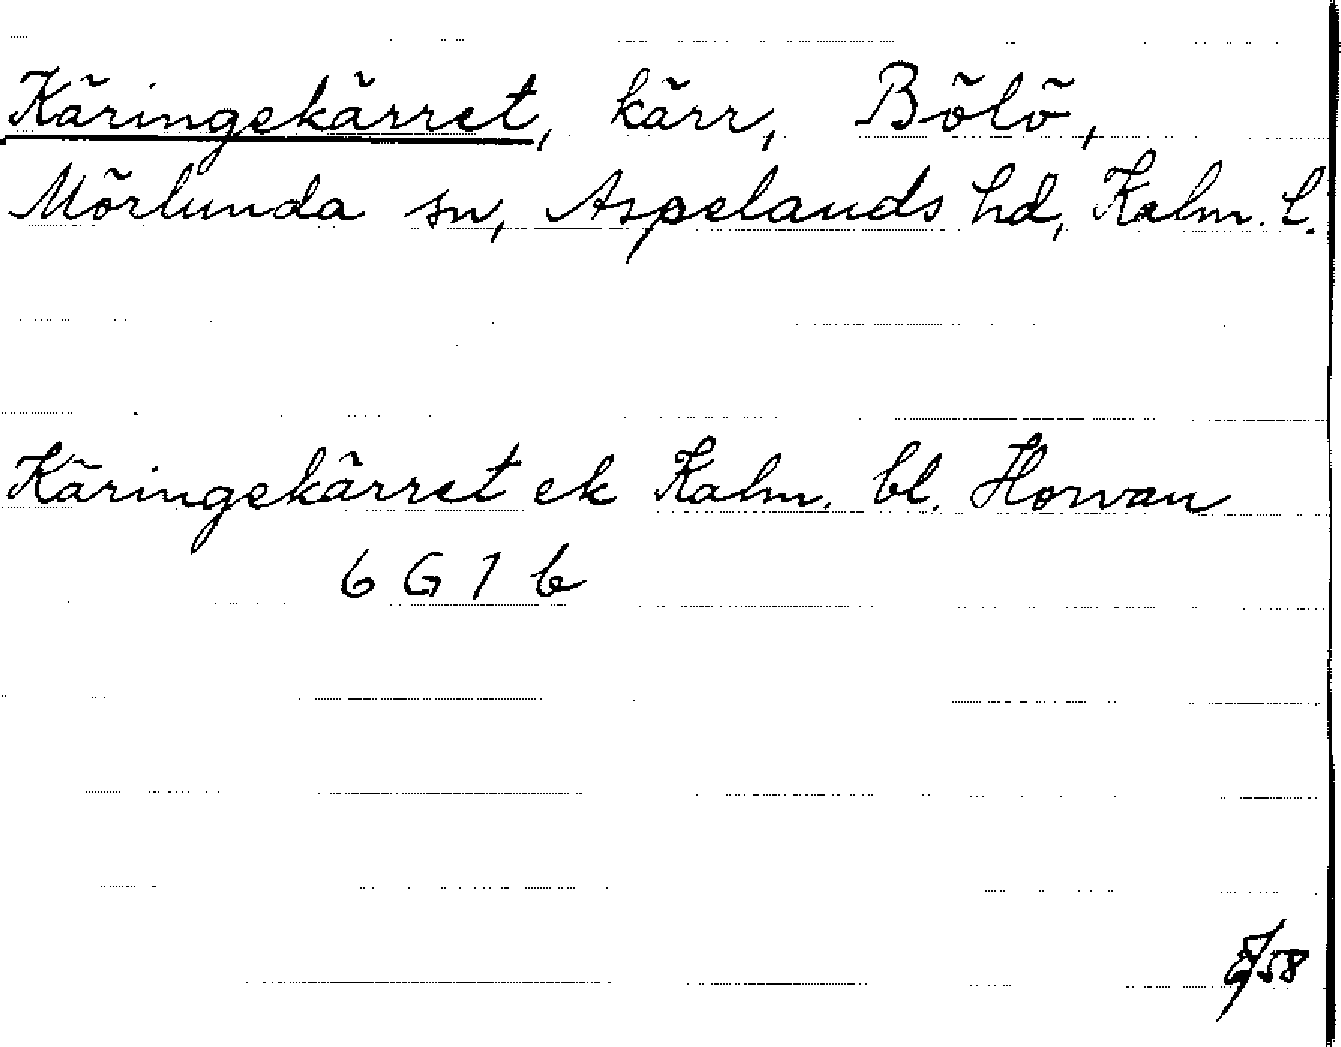 Käringekärret, kärr, Bölö,
Mörlunda sn, Aspelands hd, Kalm. l.
Käringekärret ek Kalm. bl. Horvan
6 G 1 b
/58